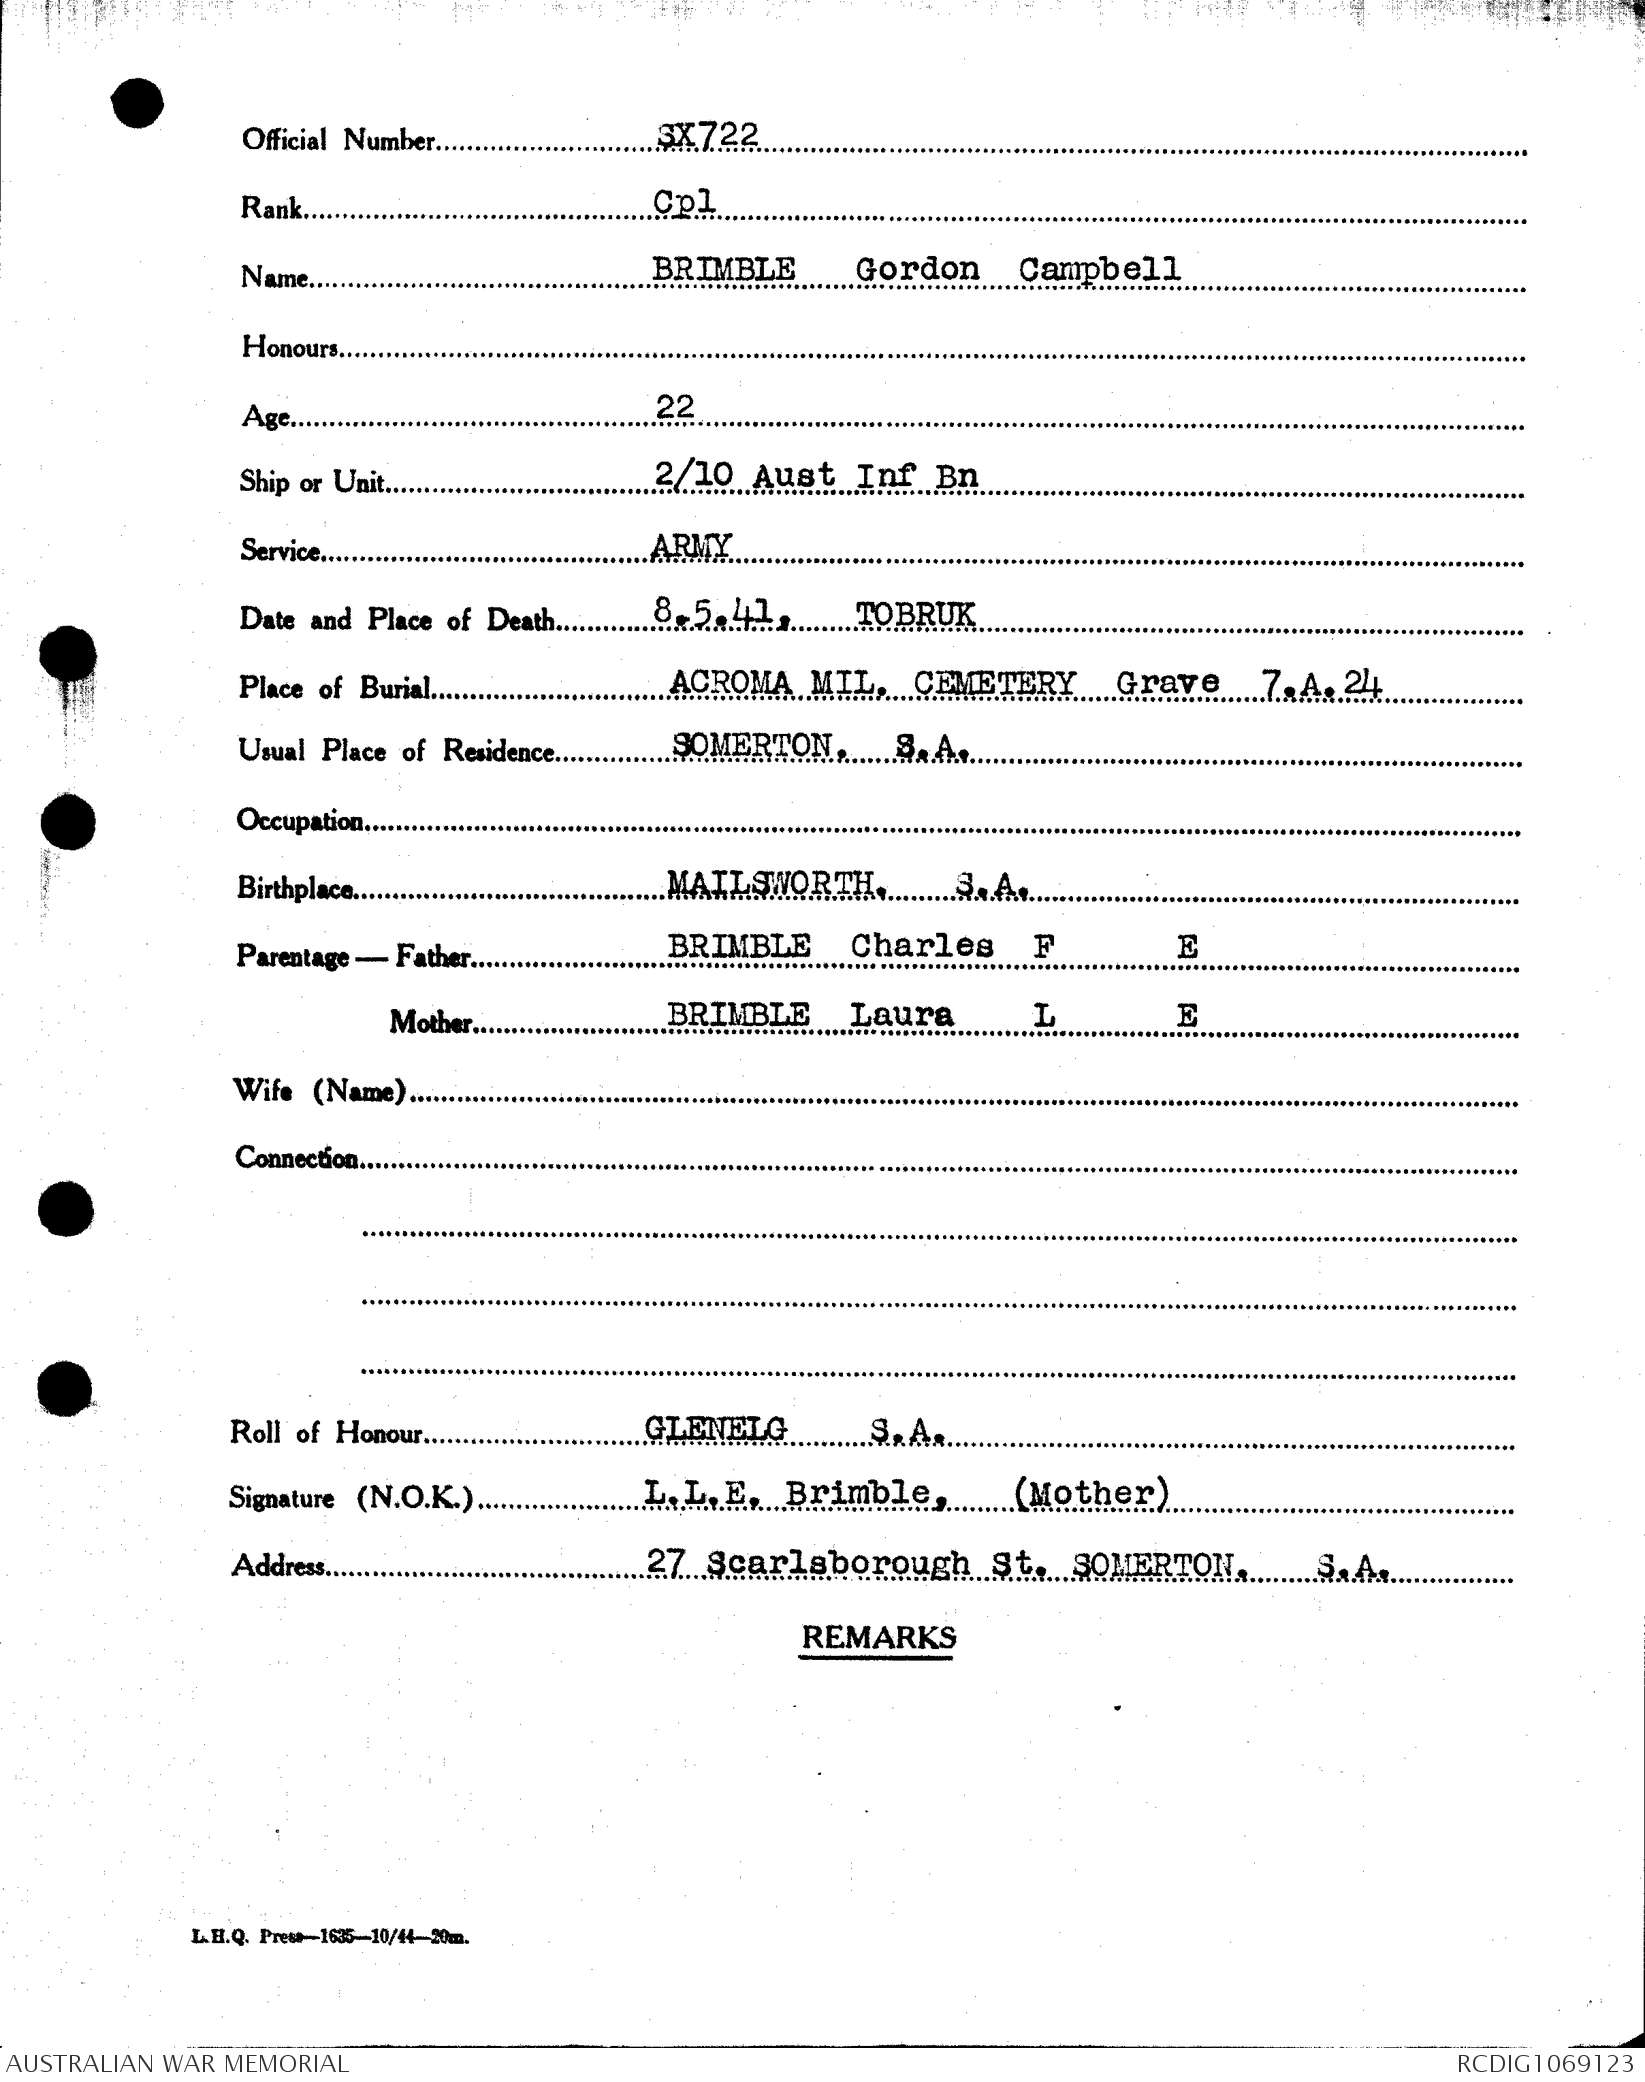 Official Number SX722
Rank Cpl
Name BRIMBLE Gordon Campbell
Honours
Age 22
Ship or Unit 2/10 Aust Inf Bn
Service ARMY
Date and Place of Death 8.5.41, TOBRUK
Place of Burial ACROMA MIL. CEMETERY Grave 7.A.24
Usual Place of Residence SOMERTON. S.A.
Occupation
Birthplace MAILSWORTH. S.A.
Parentage — Father BRIMBLE Charles F E
Mother BRIMBLE Laura L E
Wife (Name)
Connection
Roll of Honour GLENELG S.A.
Signature (N.O.K.) L.L.E. Brimble, (Mother)
Address 27 Scarlsborough St. SOMERTON. S.A.
REMARKS
L.H.Q. Press—1635—10/44—20m.
AUSTRALIAN WAR MEMORIAL RCDIG1069123